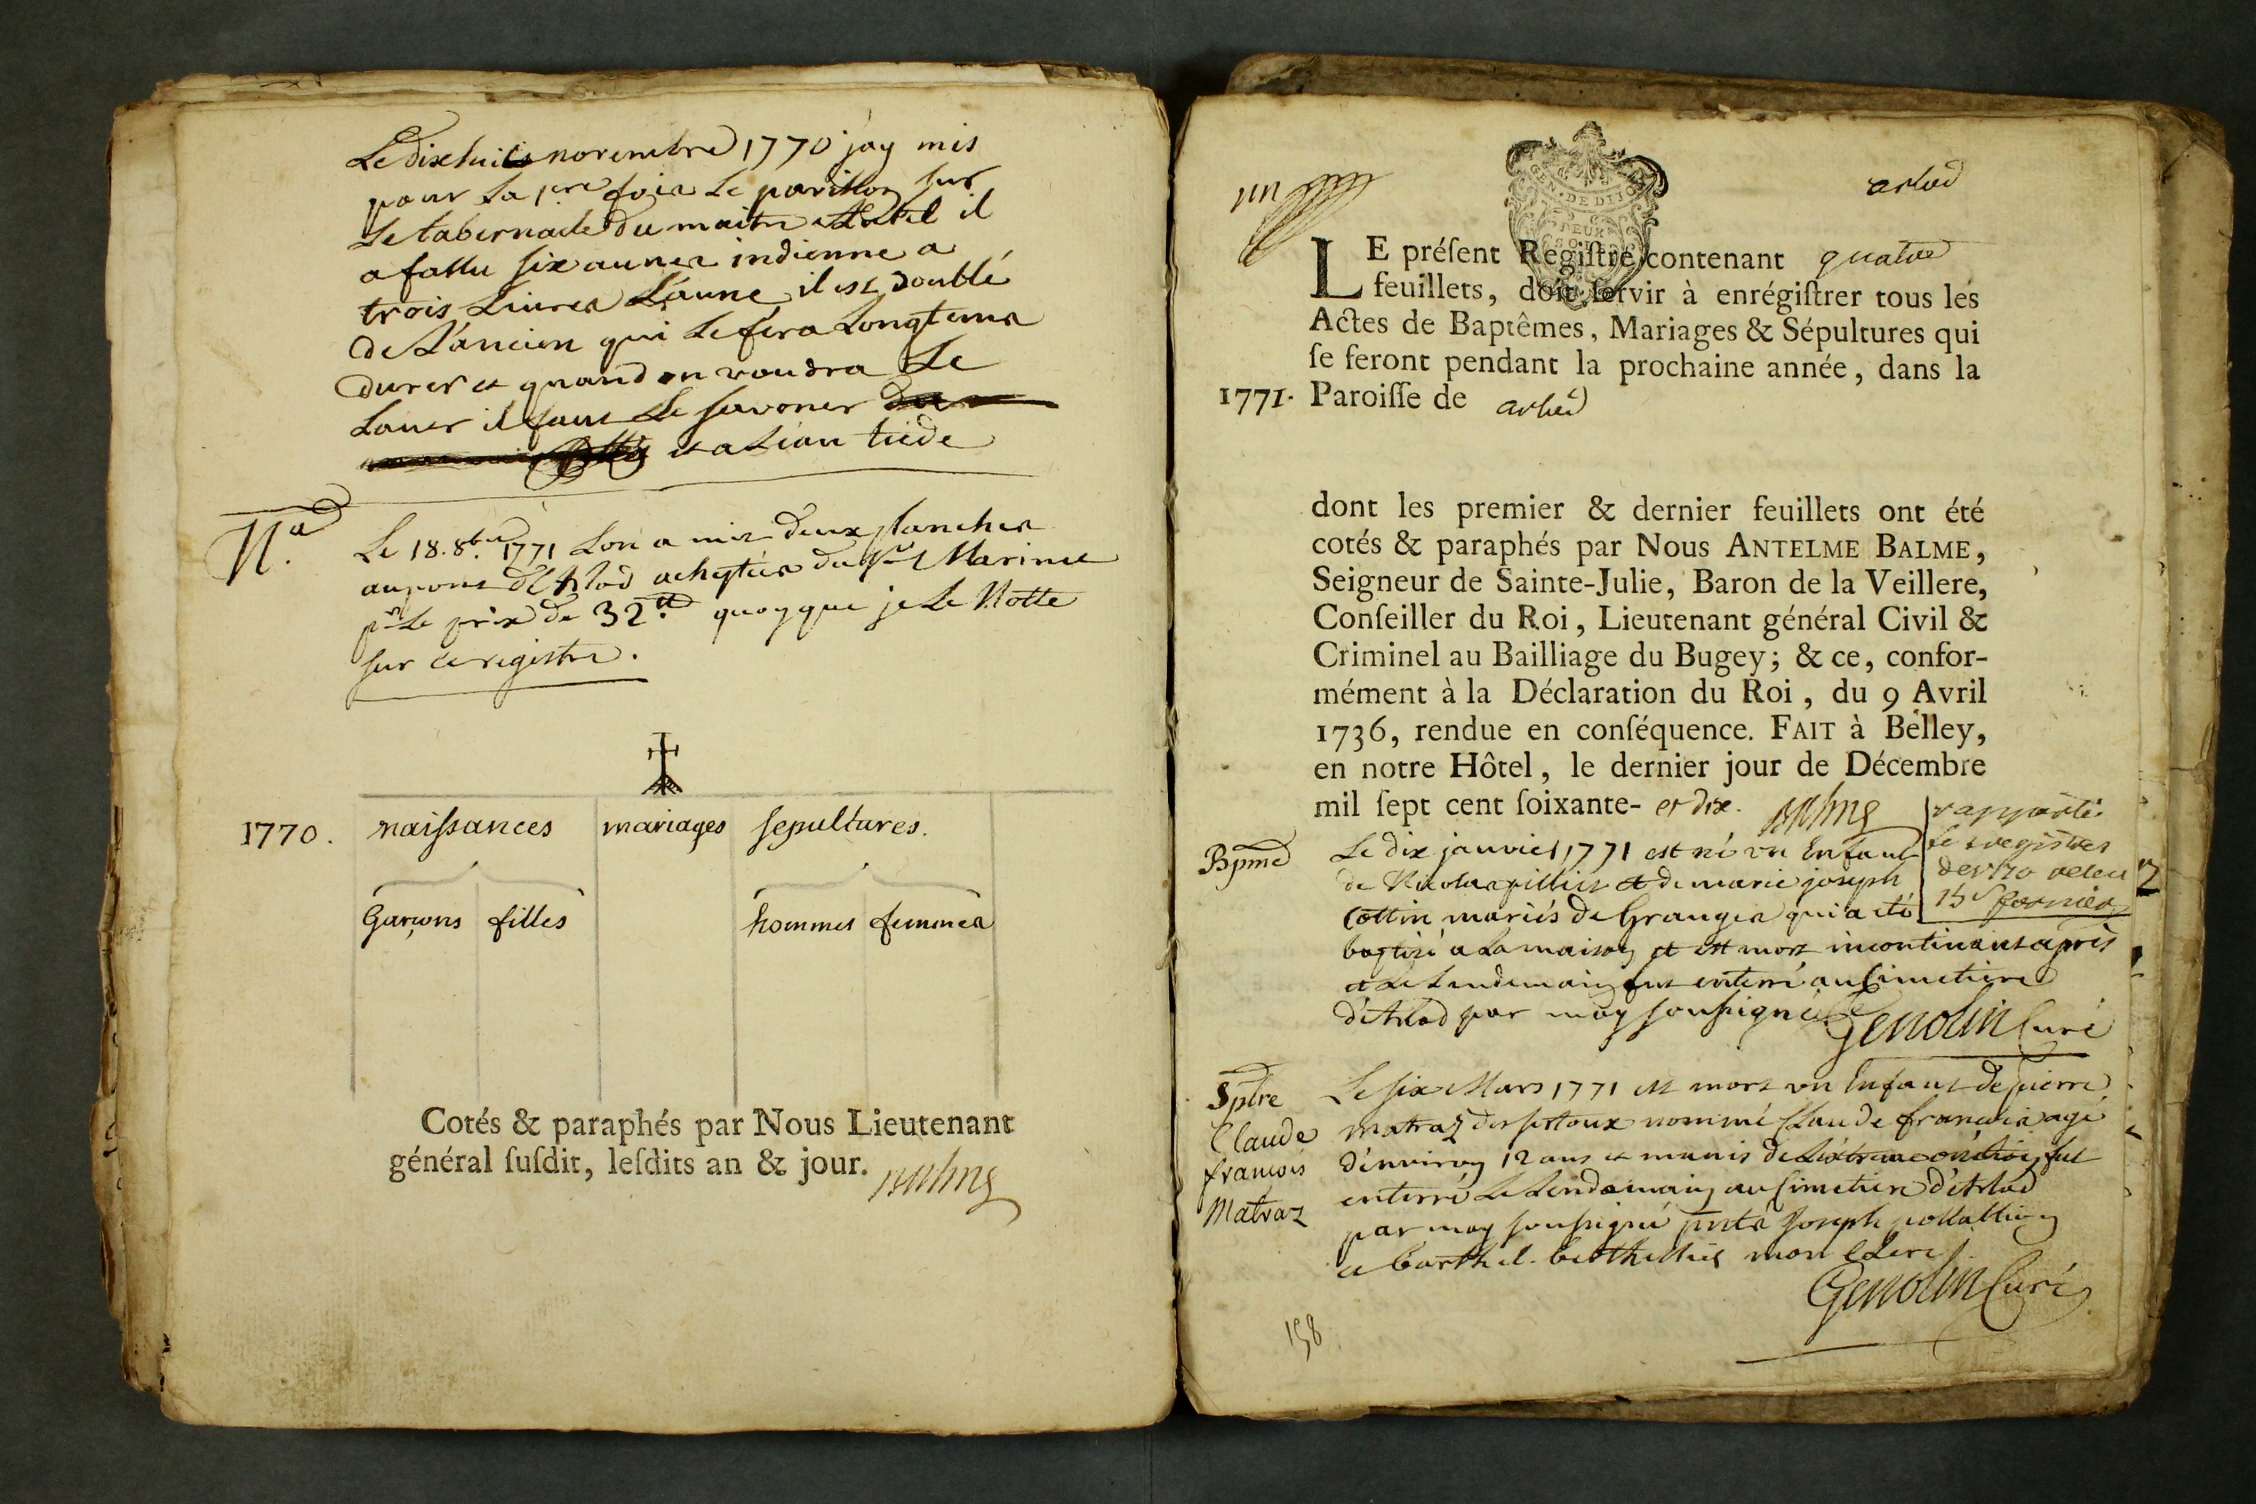 Le dixhuit novembre 1770 j'ay mis
pour La 1ere fois Le pavillon sur
Le tabernacle du maitre Autel il
a fallu six aunes indienne a
trois Livres L'aune, il est doublé
de L'ancien qui Le fera Longtems
durer et quand on voudra Le
Laver il faut Le savoner
et a L'eau tiede
Na. Le 18. 8bre 1771 Lon a mis deux planches
au pont d'Arlod acheptées du Sr Marinet
pr Le prix de 32tt quoyque je Le Notte
sur ce registre.
1770. naissances mariages sepultures.
Garçons filles hommes femmes
Cotés & paraphés par Nous Lieutenant
général susdit, lesdits an & jour. Balme
un
arlod
GEN. DE DIJON
DEUX SOLS
LE présent Registre contenant quatre
feuillets, doit servir à enrégistrer tous les
Actes de Baptêmes, Mariages & Sépultures qui
se feront pendant la prochaine année, dans la
1771. Paroisse de arlod
dont les premier & dernier feuillets ont été
cotés & paraphés par Nous ANTELME BALME,
Seigneur de Sainte-Julie, Baron de la Veillere,
Conseiller du Roi, Lieutenant général Civil &
Criminel au Bailliage du Bugey; & ce, confor-
mément à la Déclaration du Roi, du 9 Avril
1736, rendue en conséquence. FAIT à Belley,
en notre Hôtel, le dernier jour de Décembre
mil sept cent soixante- et dix. Balme
rapporté
le registres
de 1770
Bpme Le dix janvier 1771 est né un Enfant
de Nicolas pilliet et de marie joseph
Cottin mariés de Granges qui a été
baptisé a La maison et est mort incontinent après
et Le Lendemain fut enterré au Cimetiere
d'Arlod par moy soussigné
Genolin Curé
Spltre
Claude
francois
Matraz
Le six Mars 1771 est mort un Enfant de pierre
matraz des sertoux nommé Claude francois agé
d'environ 12 ans et munis de L'extreme onction fut
enterré Le Lendemain au Cimetiere d'Arlod
par moy soussigné pnts Joseph
et Barthel. berthellier mon Clerc.
Genolin Curé
158